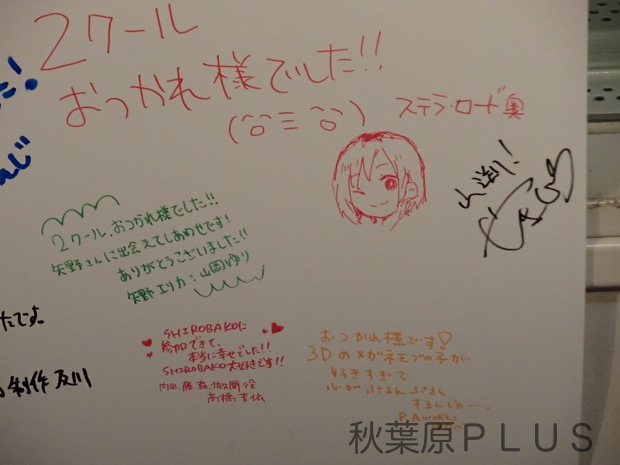 ２クール
おつかれ様でした!!
(^o^三^o^)
ステラ・ロード 奥
!
山道!
2クール、おつかれ様でした!!
矢野さんに出会えてしあわせです!
ありがとうございました!!
矢野エリカ:山岡ゆり
たです。
制作 及川
SHIROBAKOに
参加できて、
本当に幸せでした!!
SHIROBAKO大好きです!!
内田、藤、森、佐久間役
高橋
おつかれ様です♡
3Dのメガネモブの子が
好きすぎて
心がぷるんぷるん
するんじゃー。
P.A.WORKS
秋葉原ＰＬＵＳ